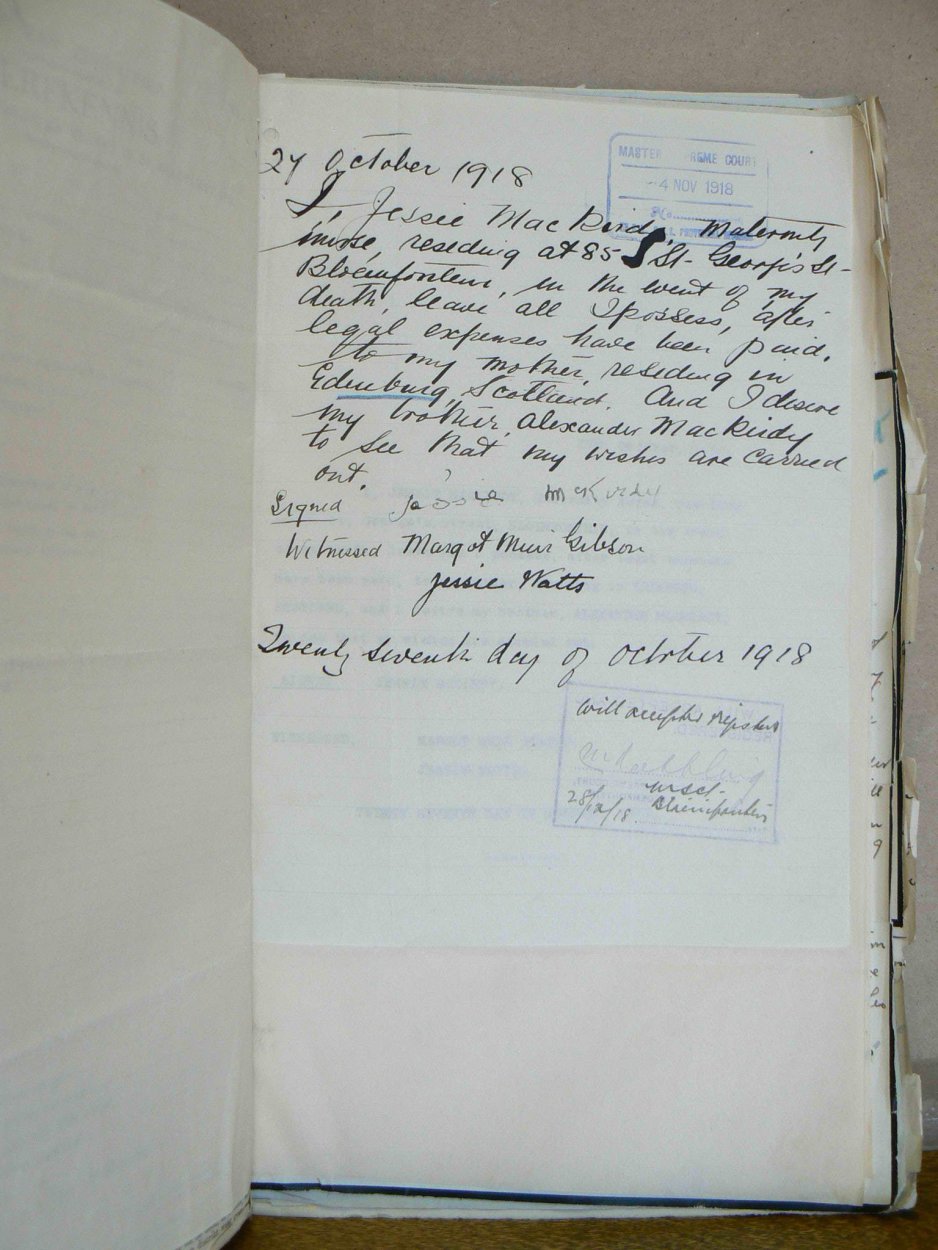 27 October 1918
MASTER SUPREME COURT
-4 NOV 1918
I, Jessie MacKurdy, Maternity
nurse, residing at 85 St. George's St-
Bloemfontein, in the event of my
death, leave all I possess, after
legal expenses have been paid,
to my mother, residing in
Edenburg, Scotland. And I desire
my brother, Alexander MacKurdy
to see that my wishes are carried
out.
Signed Jessie McKurdy
Witnessed Margot Muir Gibson
Jessie Watts
Twenty seventh day of October 1918
Will accepted & registered
Bloemfontein
28/12/18